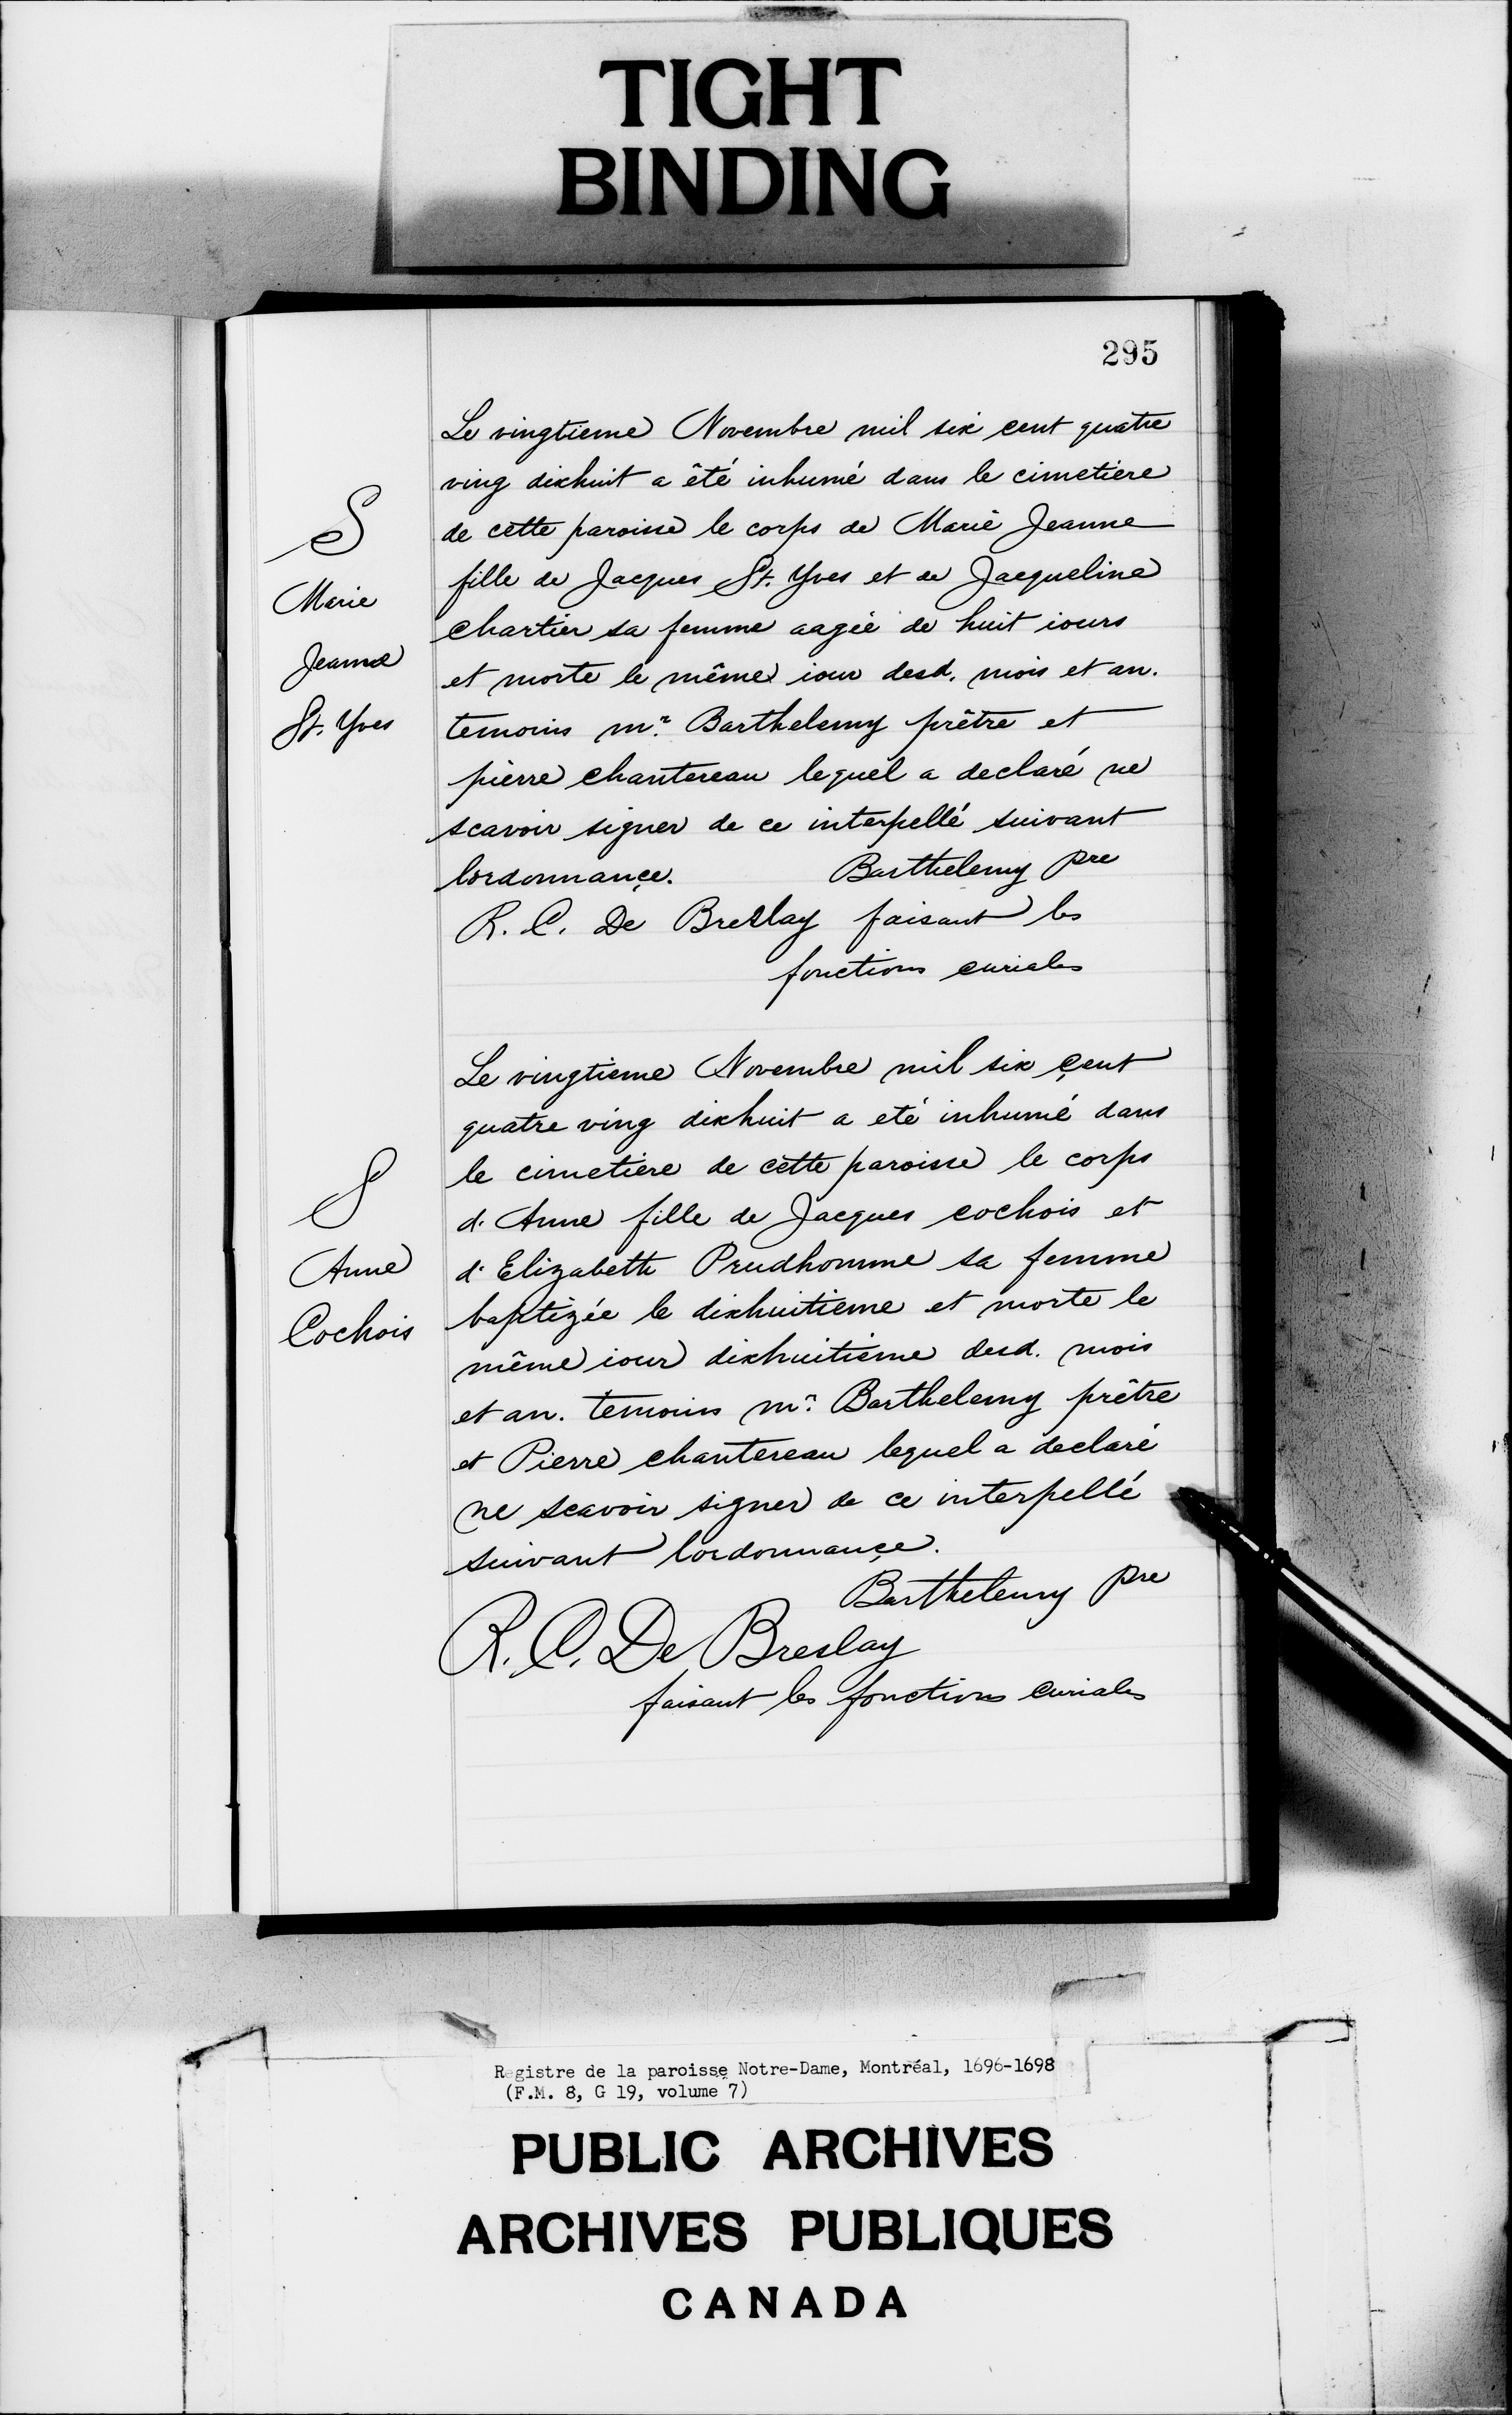 TIGHT
BINDING
295
Le vingtieme Novembre mil six cent quatre
ving dixhuit a êté inhumé dans le cimetiere
de cette paroisse le corps de Marie Jeanne
fille de Jacques St. Yves et de Jacqueline
chartier sa femme aagée de huit iours
et morte le même iour desd. mois et an.
temoins mr. Barthelemy prêtre et
pierre chantereau lequel a declaré ne
scavoir signer de ce interpellé suivant
lordonnançe. Barthelemy pre
R. C. De Breslay faisant les
fonctions curiales
S
Marie
Jeanne
St. Yves
Le vingtieme Novembre mil six çent
quatre ving dixhuit a eté inhumé dans
le cimetiere de cette paroisse le corps
d. Anne fille de Jacques cochois et
d. Elizabeth Prudhomme sa femme
baptizée le dixhuitieme et morte le
même iour dixhuitième desd. mois
et an. temoins mr. Barthelemy prêtre
et Pierre chantereau lequel a declaré
ne scavoir signer de ce interpellé
suivant lordonnançe.
Barthelemy pre
R. C. De Breslay
faisant les fonctions curiales
S
Anne
Cochois
Registre de la paroisse Notre-Dame, Montréal, 1696-1698
(F.M. 8, G 19, volume 7)
PUBLIC ARCHIVES
ARCHIVES PUBLIQUES
CANADA